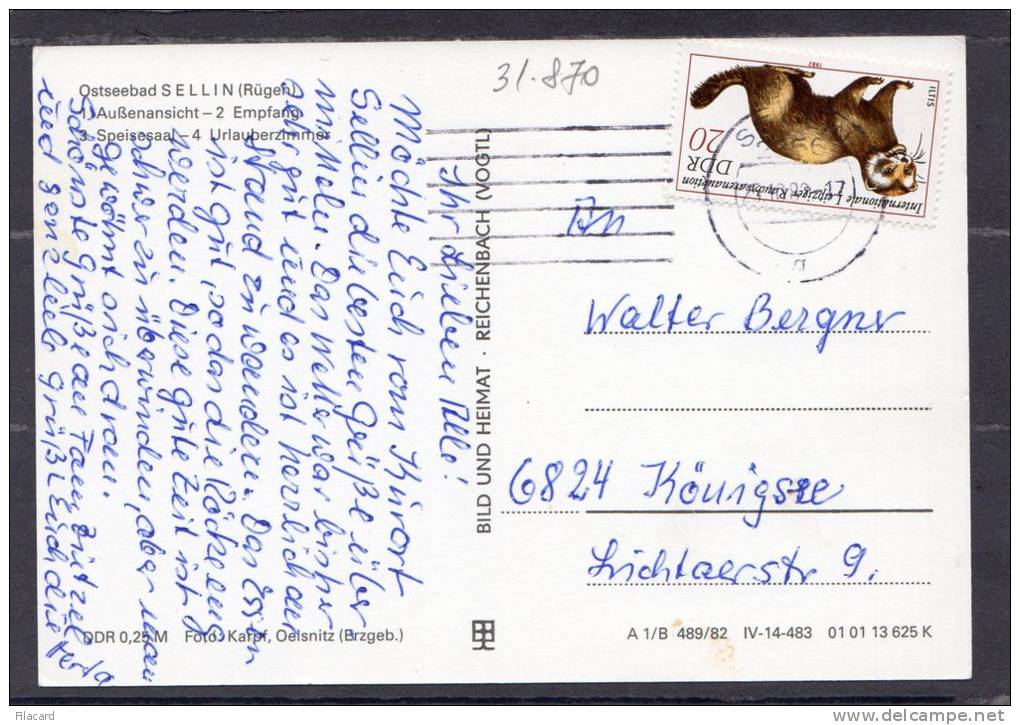 Ostseebad SELLIN (Rügen)
1 Außenansicht – 2 Empfang
3 Speisesaal – 4 Urlauberzimmer
31-870
Ihr Lieben Alle!
Möchte Euch vom Kurort
Sellin die besten Grüße über
mitteln. Das Wetter war bisher
sehr gut und es ist herrlich am
Strand zu wandern. Das Essen
ist gut, so das die Röcke eng
werden. Diese gute Zeit ist
schwer zu überwinden, aber man
gewöhnt sich dran.
Schönste Grüße an Fam.
und ganz lieb grüßt Euch die
BILD UND HEIMAT · REICHENBACH (VOGTL)
An
Walter Bergner
6824 Königsee
9.
ILTIS
1982
20
DDR
Internationale Leipziger Rauchwarenauktion
DDR 0,25 M Foto: Karpf, Oelsnitz (Erzgeb.)
A 1/B 489/82 IV-14-483 01 01 13 625 K
Filacard
www.delcampe.net